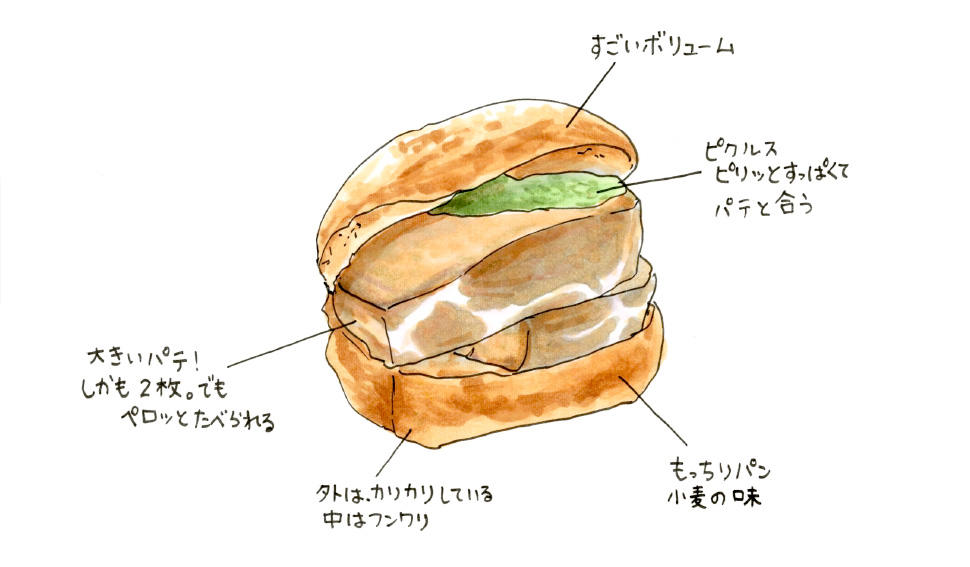 すごいボリューム
ピクルス
ピリッとすっぱくて
パテと合う
大きいパテ!
しかも2枚。でも
ペロッとたべられる
外は、カリカリしている
中はフンワリ
もっちりパン
小麦の味